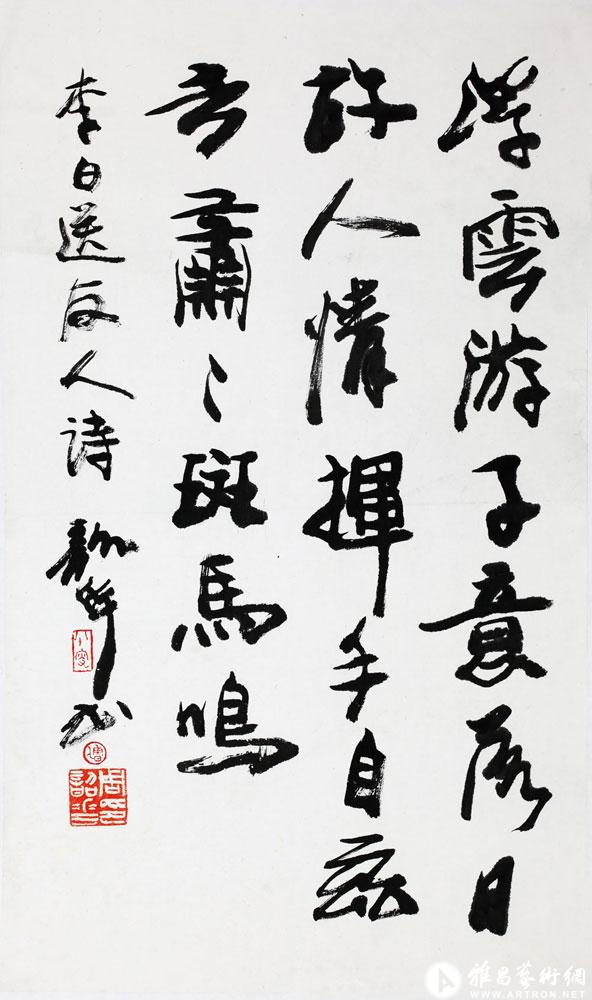 浮雲游子意落日
故人情揮手自茲
去蕭〻斑馬鳴
李白送友人诗 韶華书
雅昌藝術網
WWW.ARTRON.NET